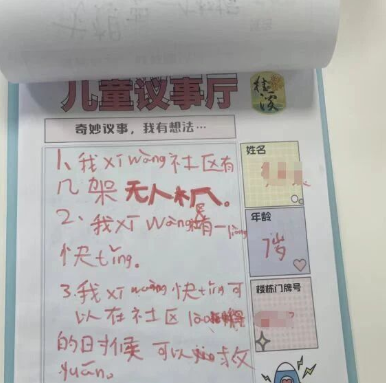 儿童议事厅
奇妙议事，我有想法…
1、我xī wàng社区有
几架无人机。
2、我xī wàng有一
快tǐng。
3、我xī wàng快tǐng可
以在社区
的时候可以救
yuán。
姓名
年龄
7岁
楼栋门牌号